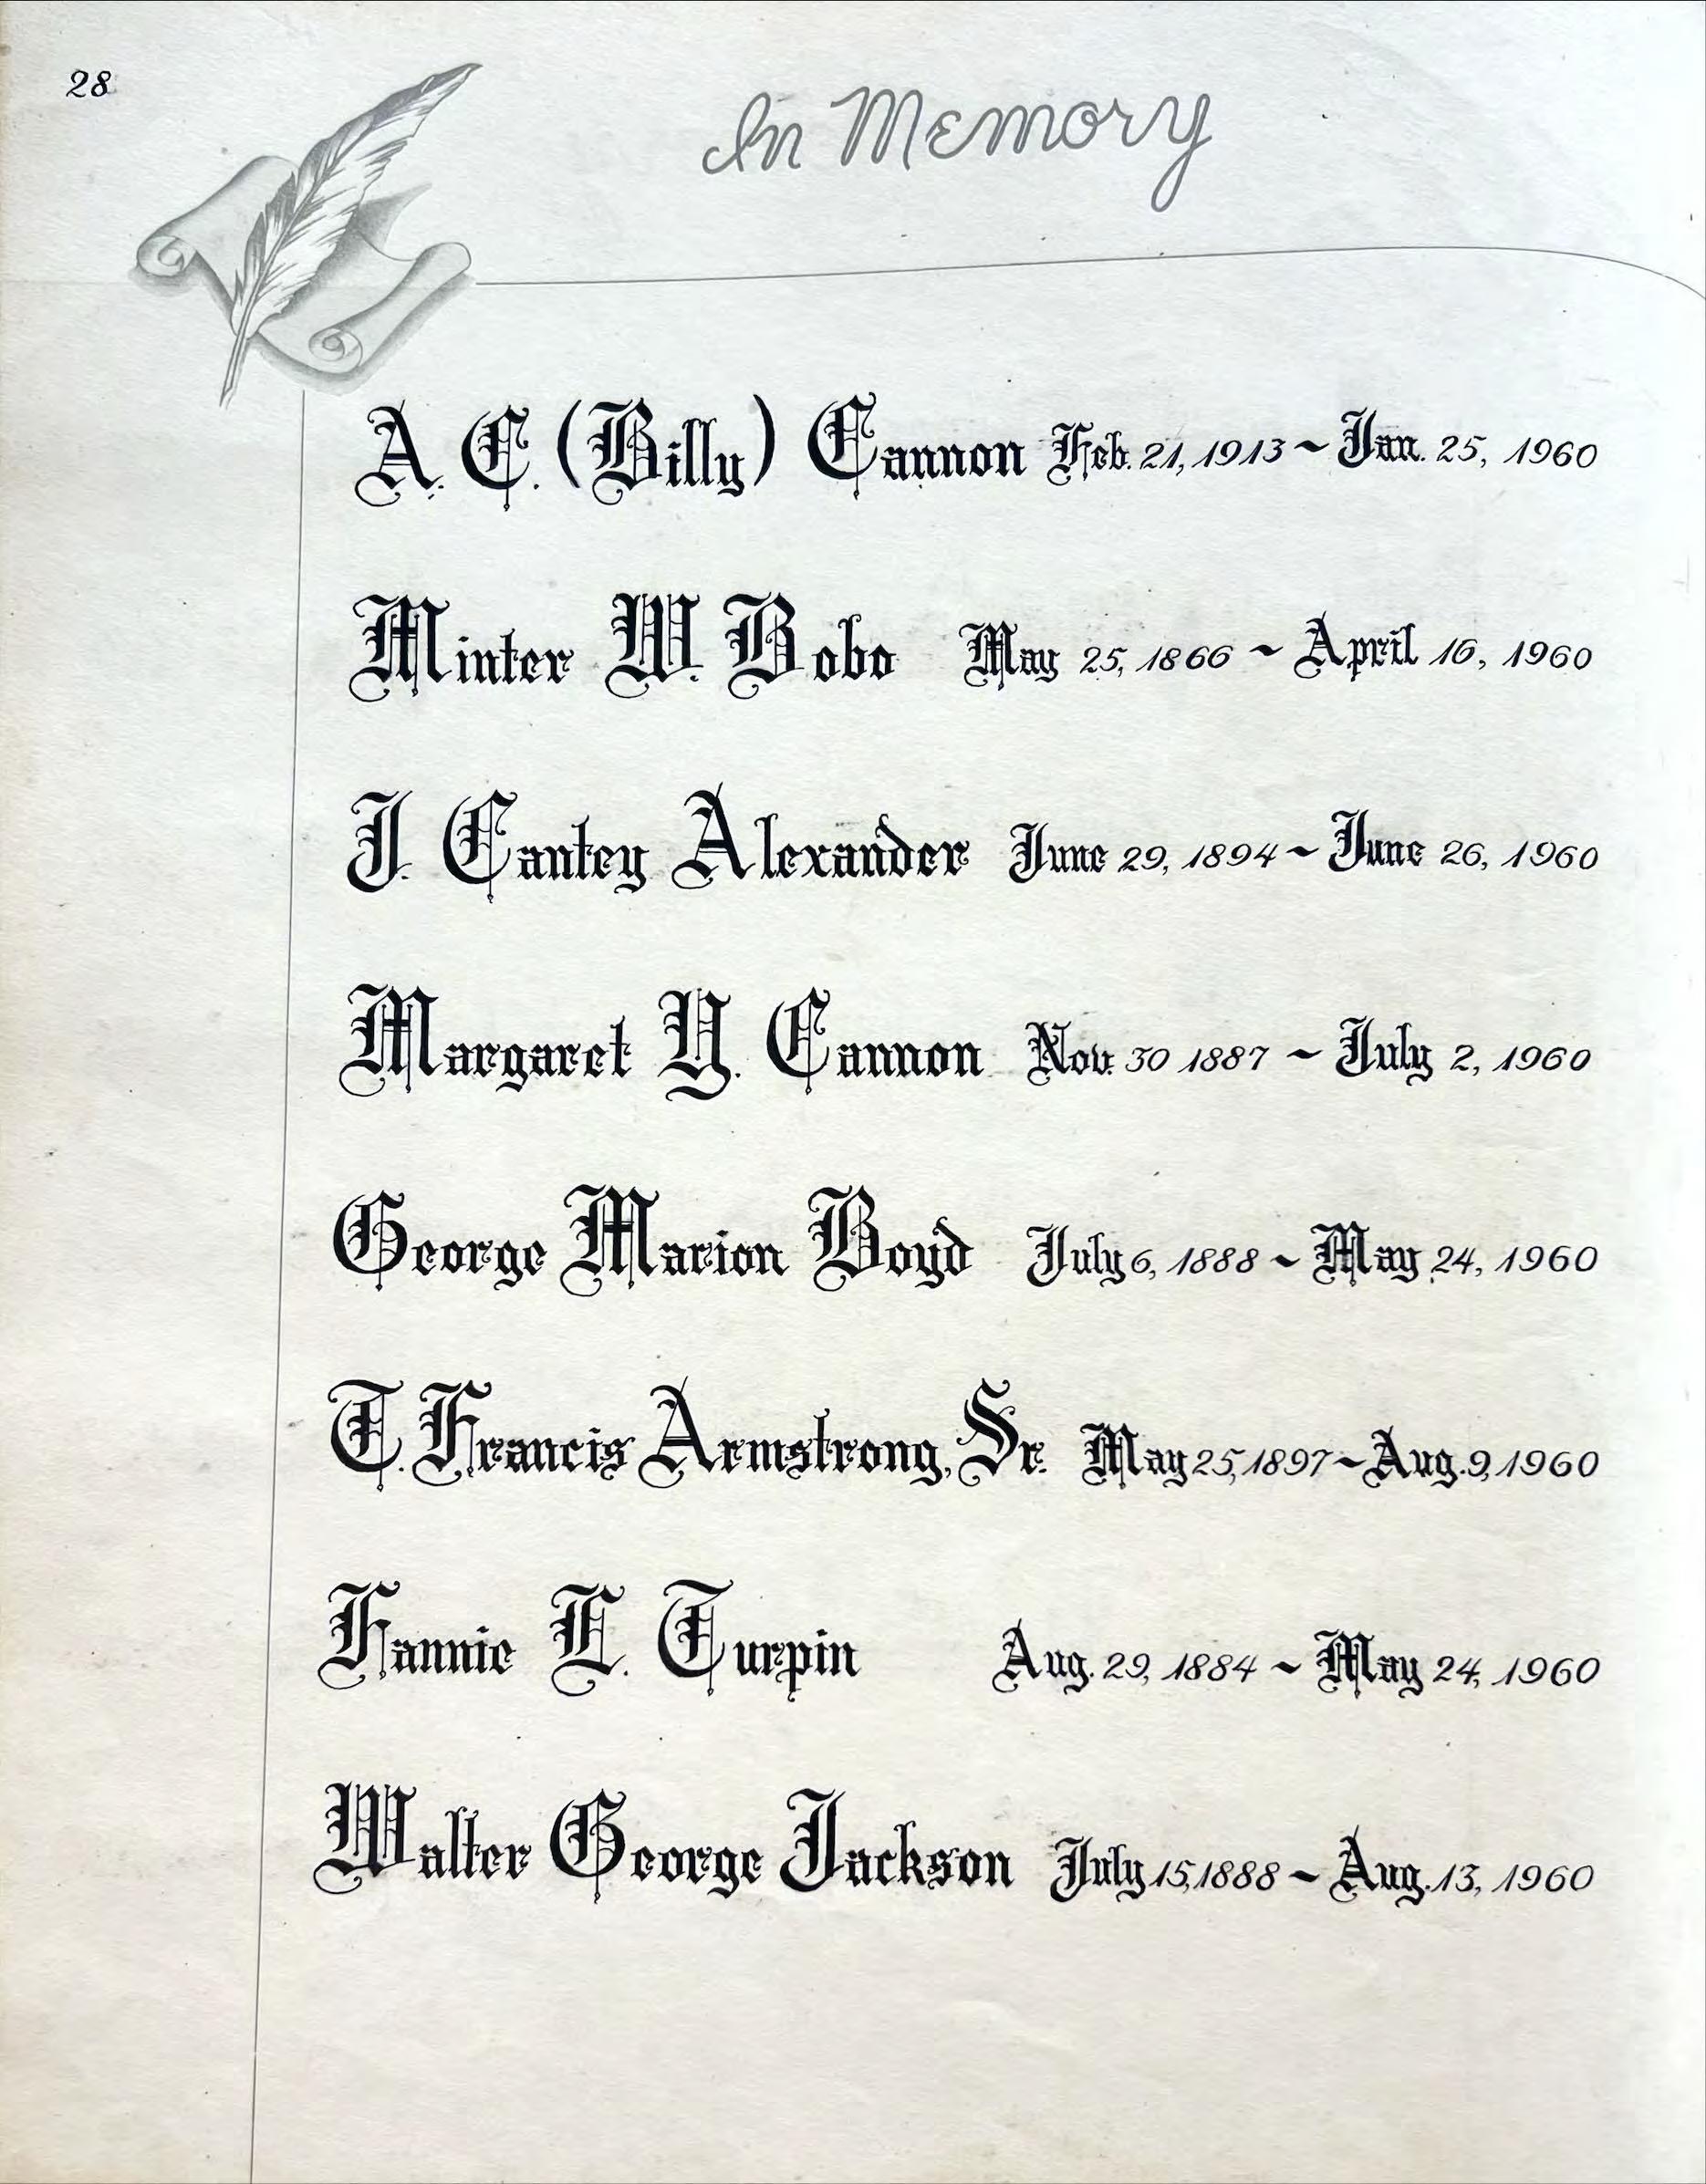 28
In Memory
A. C. (Billy) Cannon Feb. 21, 1913 ~ Jan. 25, 1960
Minter W. Bobo May 25, 1866 ~ April 16, 1960
J. Cantey Alexander June 29, 1894 ~ June 26, 1960
Margaret Y. Cannon Nov. 30 1887 ~ July 2, 1960
George Marion Boyd July 6, 1888 ~ May 24, 1960
T. Francis Armstrong, Sr. May 25, 1897 ~ Aug. 9, 1960
Fannie E. Turpin Aug. 29, 1884 ~ May 24, 1960
Walter George Jackson July 15, 1888 ~ Aug. 13, 1960